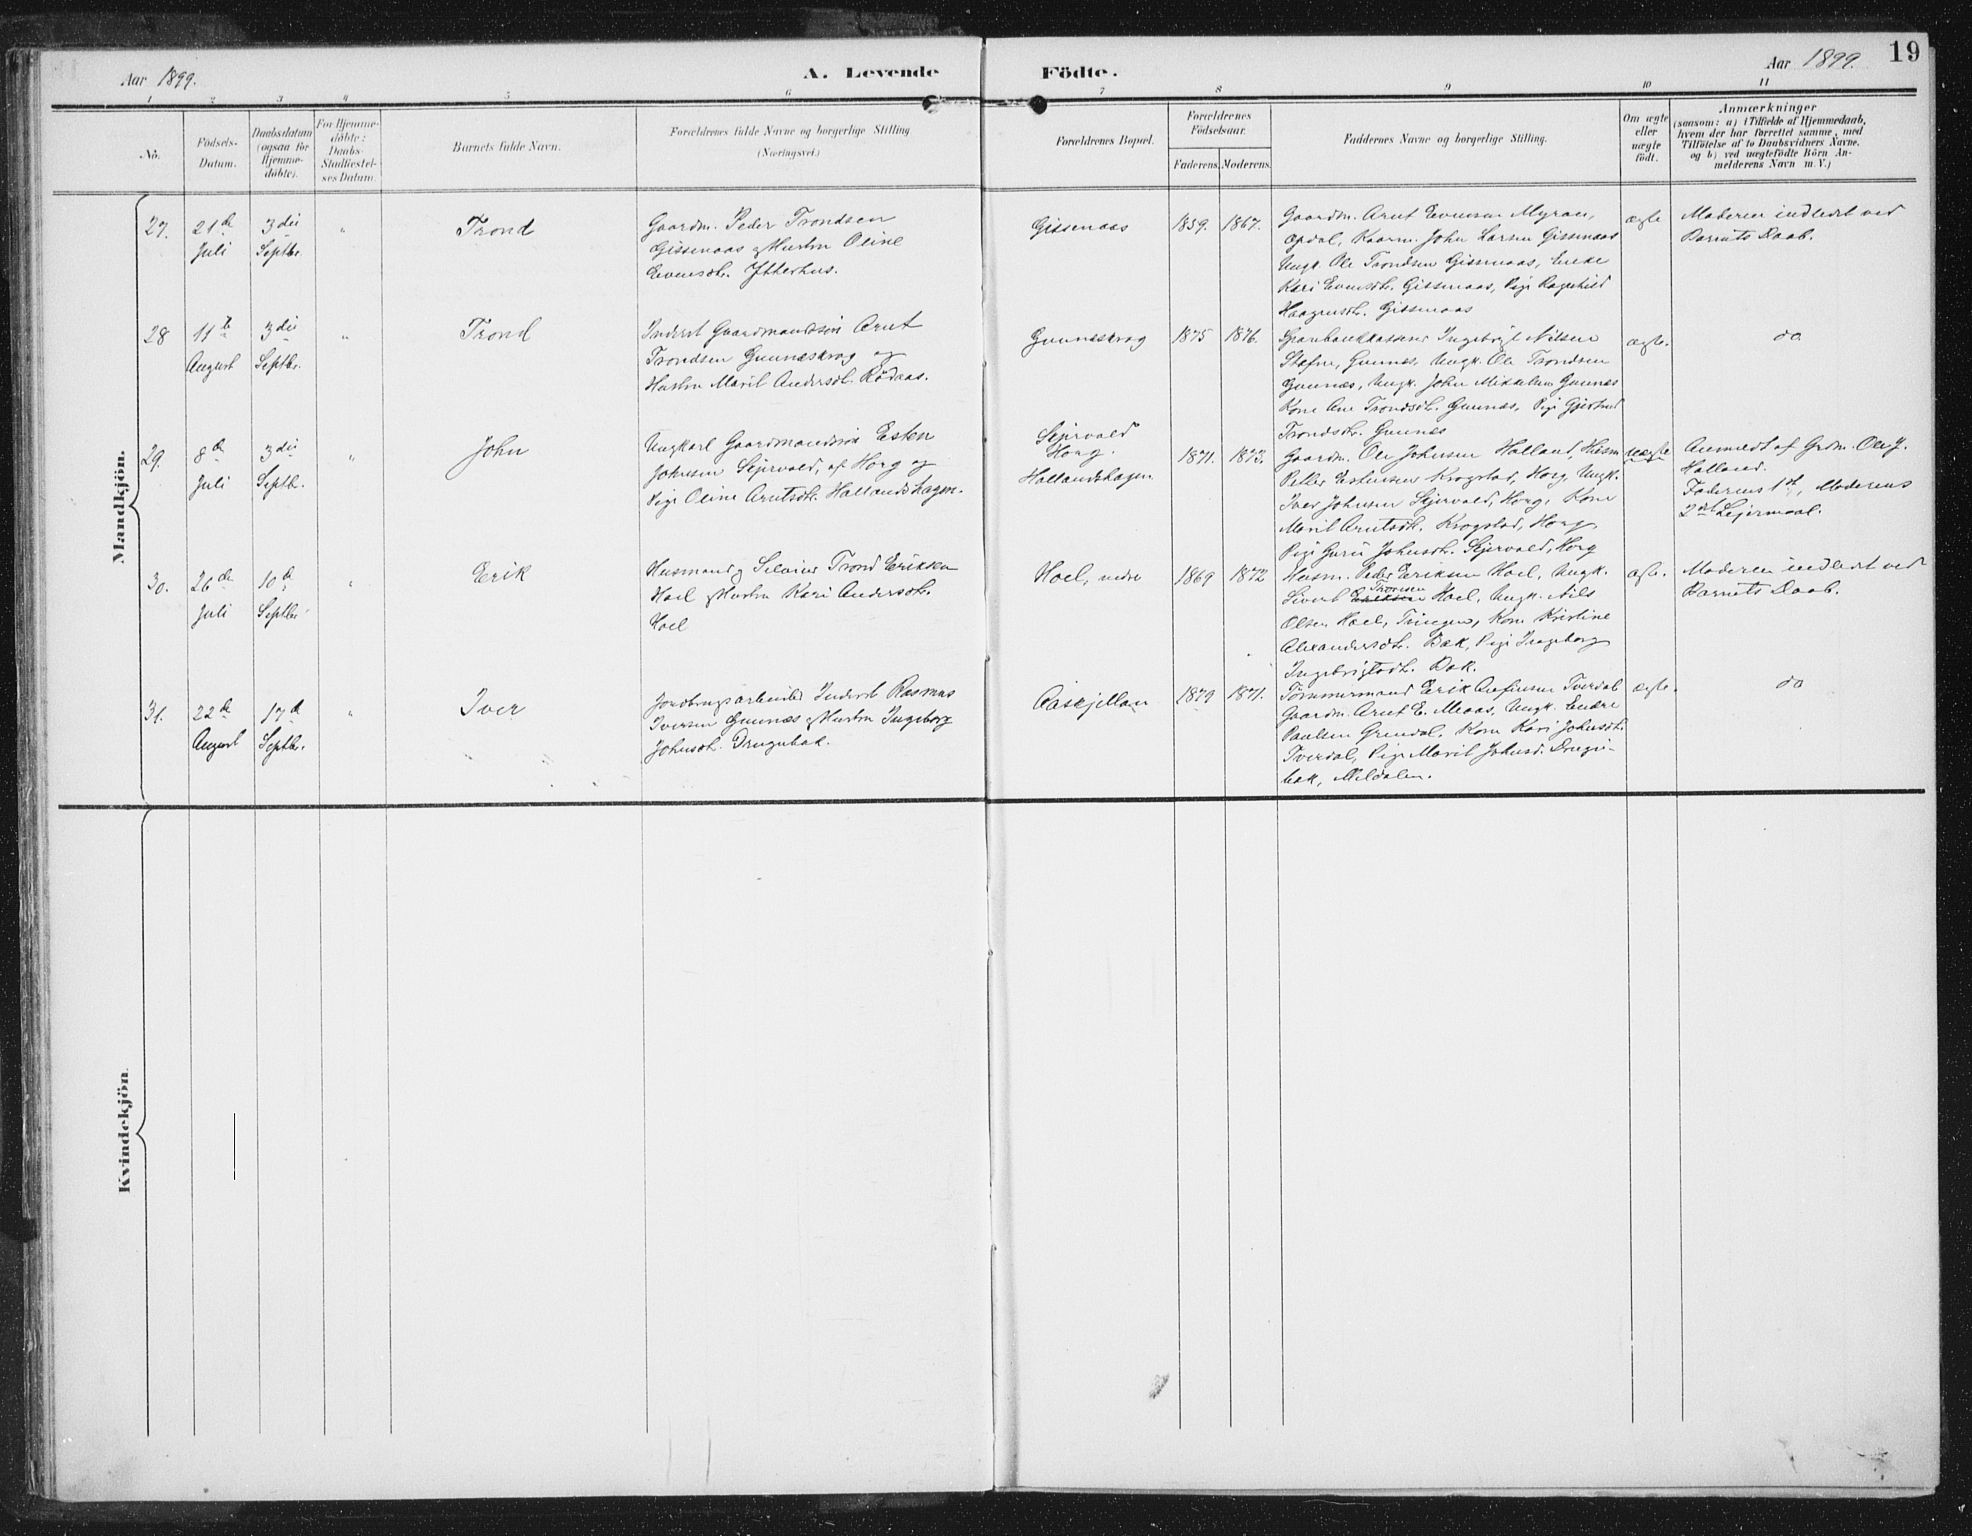 Aar 1899.
A. Levende Födte.
Aar 1899.
19
1 2 3 4 5 6 7 8 9 10 11
No.
Födsels-
Datum.
Daabsdatum
(ogsaa for
Hjemme-
döbte).
For Hjemme-
döbte:
Daabs-
Stadfæstel-
ses Datum.
Barnets fulde Navn.
Forældrenes fulde Navne og borgerlige Stilling
(Næringsvei.)
Forældrenes Bopæl.
Forældrenes
Födselsaar.
Faderens. Moderens.
Faddernes Navne og borgerlige Stilling.
Om ægte
eller
uægte
födt.
Anmærkninger
(saasom: a) i Tilfælde af Hjemmedaab,
hvem der har forrettet samme, med
Tilföielse af to Daabsvidners Navne,
og b) ved uægtefödte Börn An-
melderens Navn m. V.)
Mandkjön.
27.
21de
Juli
3die
Septbr.
"
Trond
Gaardm. Peder Trondsen
Gissenaas & Hustru Oline
Evensdtr. Ytterhus.
Gissenaas
1859. 1867.
Gaardm. Arnt Evensen Myran,
Opdal, Kaarm. John Larsen Gissenaas
Ungk. Ole Trondsen Gissenaas, Enke
Kari Evensdtr. Gissenaas, Pige Ragnhild
Haagensdtr. Gissenaas
ægte
Moderen indledet ved
Barnets Daab.
28
11te
August
3die
Septbr.
"
Trond
Inderst Gaardmandssön Arnt
Trondsen Gunneskrog og
Hustru Marit Andersdtr. Rödaas.
Gunneskrog
1875 1876.
Ingebrigt Nilsen
Stefne, Gunnes, Ungk. Ole Trondsen
Gunnæs, Ungk. John Mikkelsen Gunnæs
Kone Ane Trondsdtr. Gunnæs, Pige Gjertrud
Trondsdtr. Gunnæs
ægte.
do
29.
8de
Juli
3die
Septb.
"
John
Ungkarl Gaardmandssön Esten
Johnsen Sejrvold, af Horg og
Pige Oline Arntsdtr. Hollandshagen.
Sejrvold
Horg.
Hollandshagen
1871. 1873.
Gaardm. Ole Johnsen Holland, Husm
Petter Estensen Krogstad, Horg, Ungk.
Iver Johnsen Sejrvold, Horg, Kone
Marit Arntsdtr. Krogstad, Horg,
Pige Guru Johnsdtr. Sejrvold, Horg
uægte
Anmeldt af Grdm. Ole J.
Holland.
Faderens 1st, Moderens
2det Lejermaal.
30.
26de
Juli
10de
Septbr
"
Erik
Husmand og Trond Eriksen
Hoel & Hustru Kari Andersdtr.
Hoel
Hoel, nedre
1869 1872
Husm. Peder Eriksen Hoel, Ungk.
Sivert Eriksen Tronsen Hoel, Ungk. Nils
Olsen Hoel, Kone Kristine
Alexandersdtr. Bak, Pige Ingeborg
Ingebrigtsdtr. Bak.
ægte.
Moderen indledet ved
Barnets Daab.
31.
22de
August
17de
Septbr.
"
Iver
Jordbrugsarbeider Inderst Rasmus
Iversen Gunnæs & Hustru Ingeborg
Johnsdtr. Drugubak.
Aaskjellan
1879 1871.
Tömmermand Erik Tverdal
Gaardm. Arnt E. Meaas, Ungk. Endre
Paulsen Grendal, Kone Kari Johnsdtr.
Tverdal, Pige Marit Johnsd. Drugu-
bak, Meldalen.
ægte.
do
Kvindekjön.